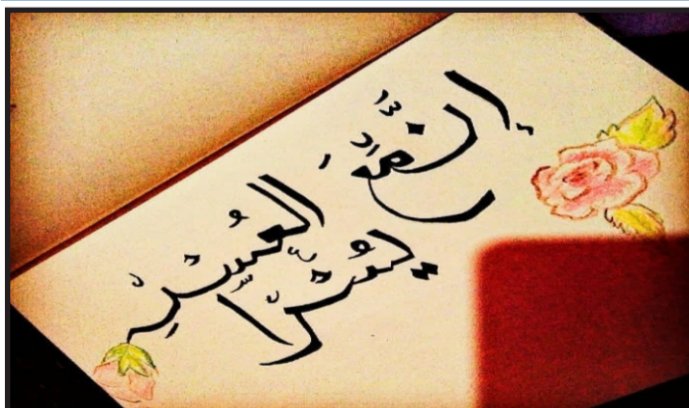 إِنَّ مَعَ العُسْرِ
يُسْرًا